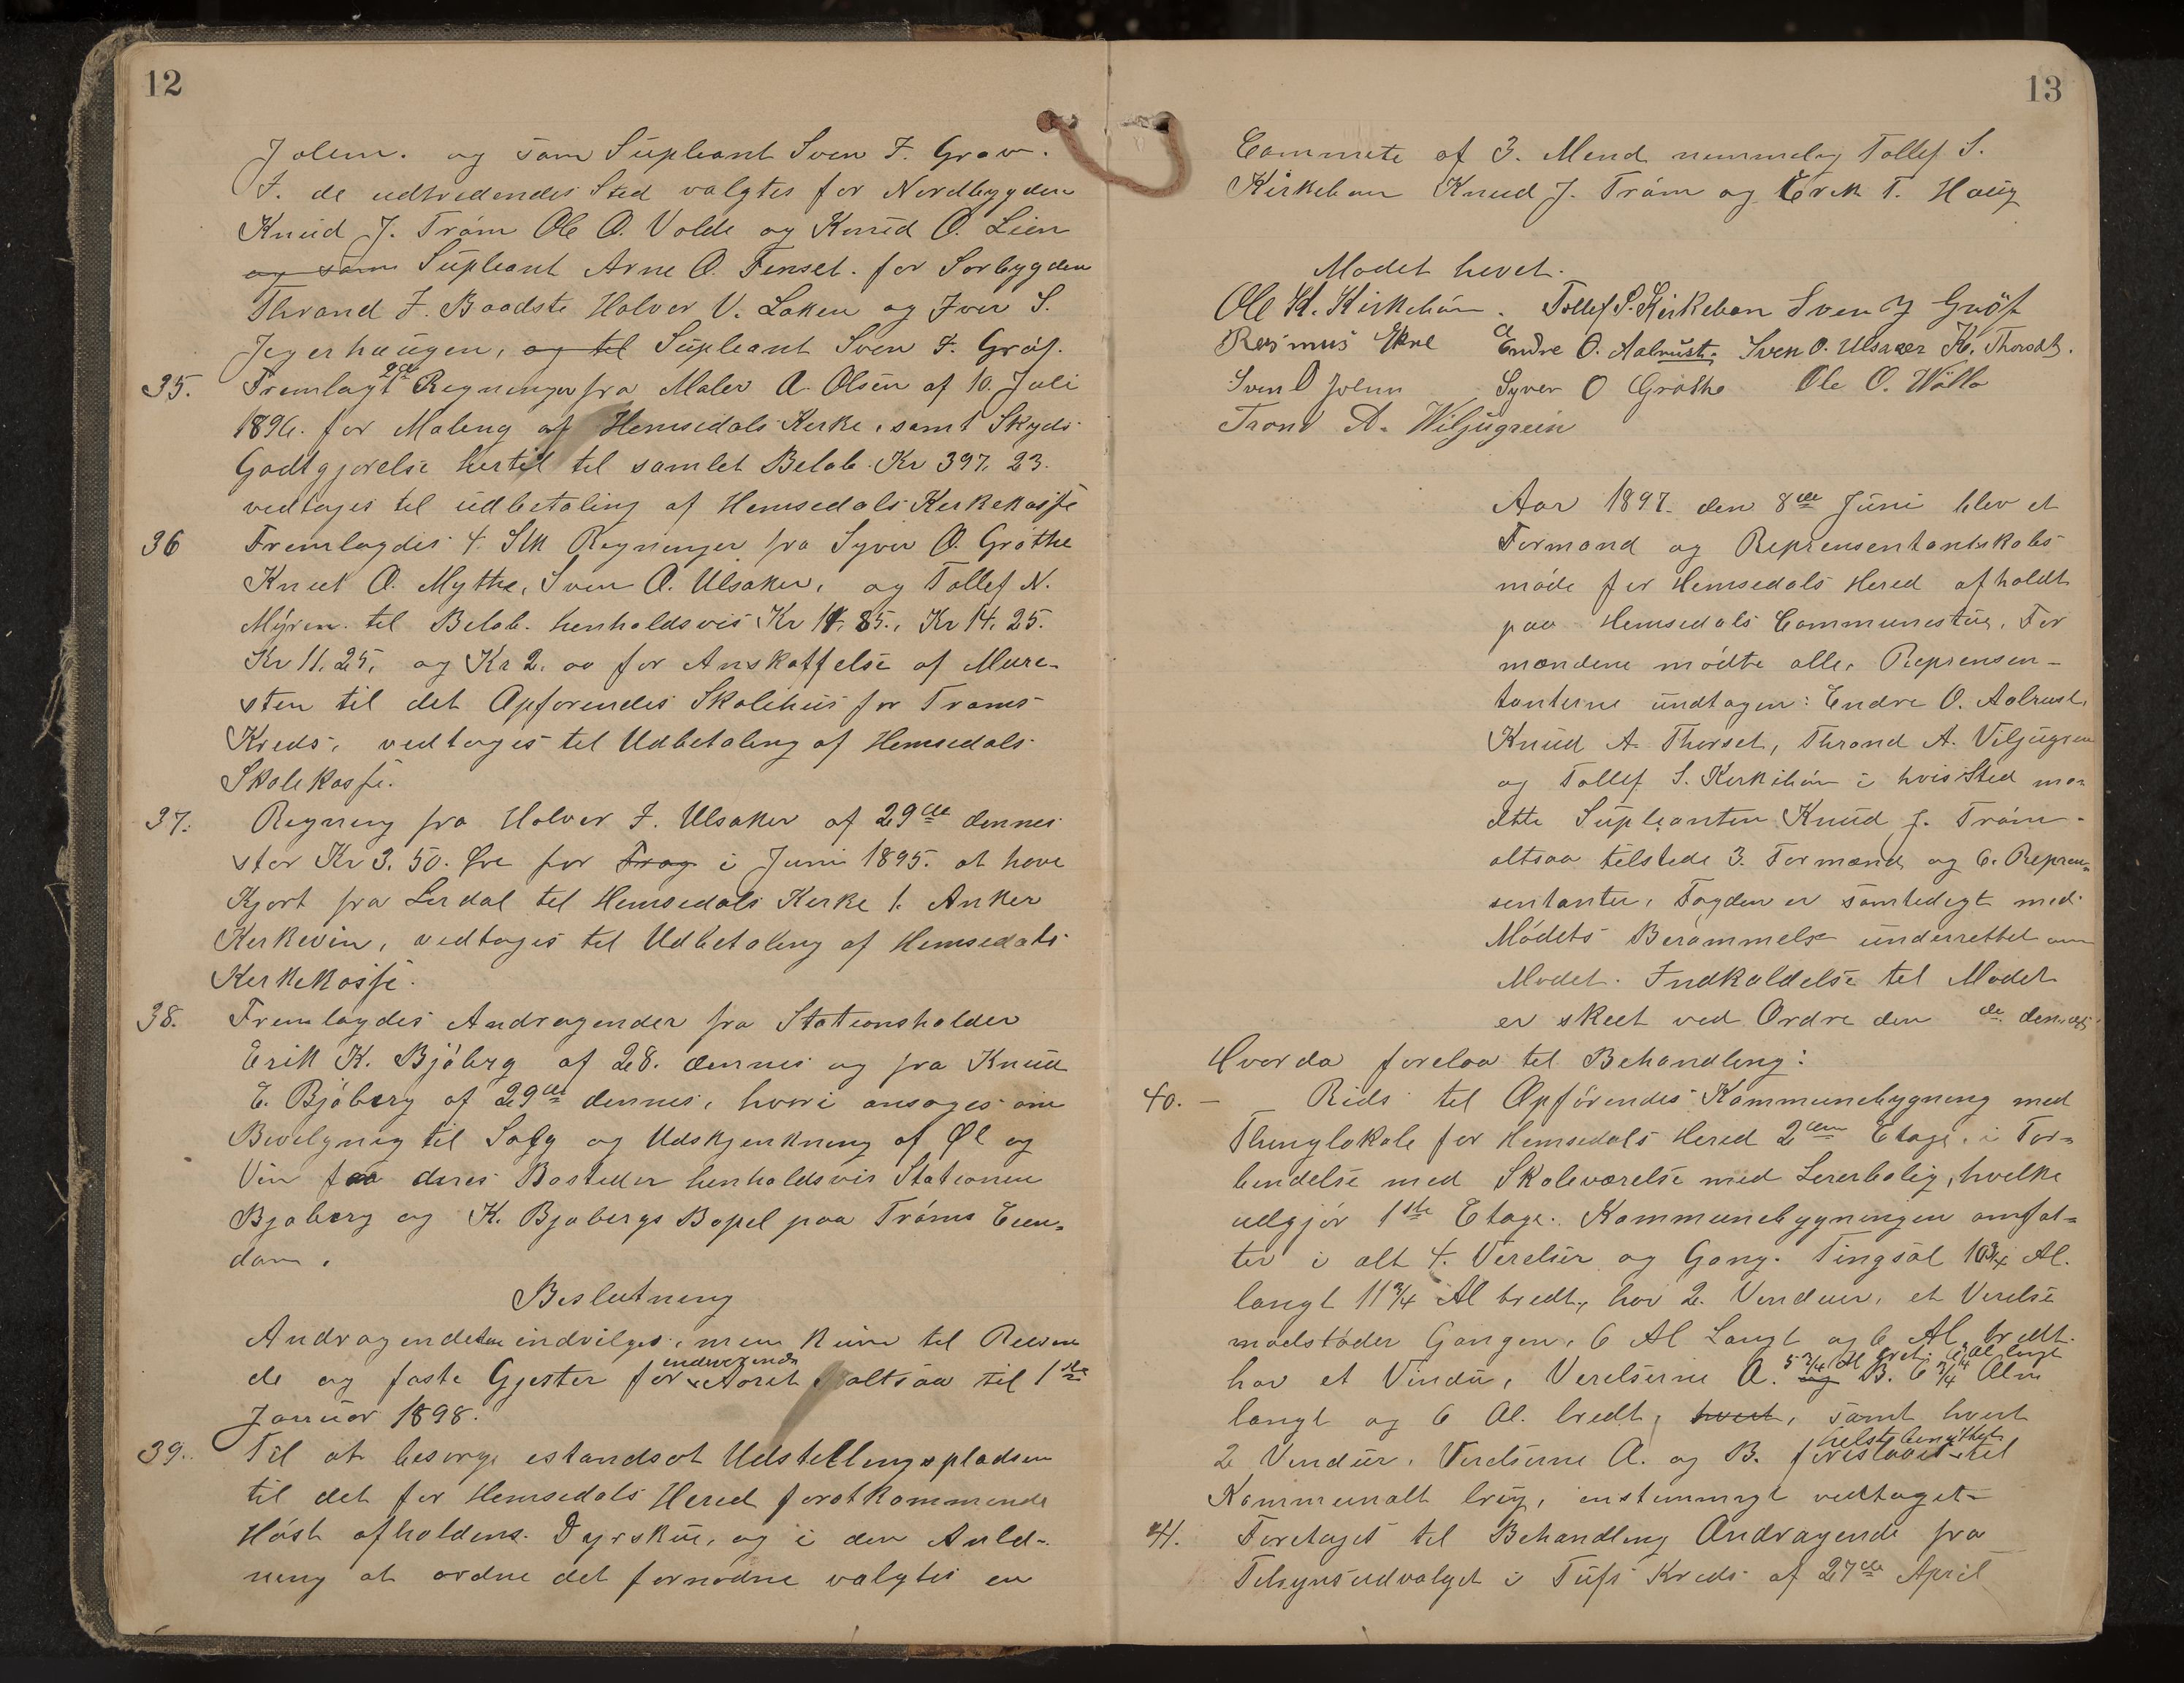 12
Jolen. og som Supleant Sven I. Grøv.
I. de udtredendes Sted valgtes for Nordbygden
Knud J. Trøim Ole O. Volde og Knud O. Lien
og som Supleant Arne O. Finset. for Sørbygden
Thrond I. Baadste Halvor V. Løken og Iver S.
Jegerhaugen, og til Supleant Sven I. Grøf.
35. Fremlagt 2de Regninger fra Maler A. Olsen af 10. Juli
1896. for Maling af Hemsedals Kirke, samt Skyds
Godtgjørelse hertil til samlet Beløb. Kr 397, 23.
vedtoges til udbetaling af Hemsedals Kirkekasse
36 Fremlagdes 4. Stk Regninger fra Syver O. Grøthe
Knut O. Mythe, Sven O. Ulsaker, og Tollef N.
Mýren. til Beløb. henholdsvis Kr 14, 85., Kr 14, 25.
Kr 11, 25, og Kr 2, oo for Anskaffelse af Mure-
sten til det Opførendes Skolehus for Trøms
Kreds, vedtoges til Udbetaling af Hemsedals
Skolekasse.
37. Regning fra Halvor I. Ulsaker af 29de dennes
stor Kr 3, 50. Øre for Frag i Juni 1895. at have
Kjørt fra Lerdal til Hemsedals Kirke 1. Anker
Kirkevin, vedtoges til Udbetaling af Hemsedals
Kirkekasse.
38. Fremlagdes Andragender fra Stationsholder
Erik K. Bjøberg af 28. dennes og fra Knud
E. Bjøberg af 29de dennes, hvori ansøges om
Bevilgning til Salg og Udskjenkning af Øl og
Vin fra deres Bosteder henholdsvis Stationen
Bjøberg og K. Bjøbergs Bopel paa Trøms Eien-
dom.
Beslutning
Andragendeten indvilges, men kun til Reisen
de og faste Gjester for indeværende Aaret, altsaa til 1ste
Januar 1898.
39. Til at besørge istandsat Udstillingspladsen
til det for Hemsedals Hered førstkommende
Høst afholdens Dyrskue, og i den Anled-
ning at ordne det fornødne valgtes en
13
Commite af 3. Mend nemmelig Tollef S.
Kirkebøen Knud J. Trøim og Erik T. Haug
Mødet hevet.
Ole K. Kirkebøn. Tollef S. Kirkebøn Sven I Grøf
Rasmus Ekre Endre O. Aalrust. Sven O. Ulsaker K. Thorset.
Sven O Jolen Syver O Grøthe Ole O. Wølla
Trond A. Wiljugrein
Aar 1897. den 8de Juni blev et
Formand og Reprensentantskabs
møde for Hemsedals Hered afholdt
paa Hemsedals Communestue. For
mændene mødte alle. Reprensen-
tanterne undtagen: Endre O. Aalrust,
Knud A. Thorset, Thrond A. Viljugrein
og Tollef S. Kirkebøn i hvis Sted mø
dtte Supleanten Knud J. Trøim.
altsaa tilstede 3. Formænd og 6. Repren-
sentanter. Fogden er samtidigt med
Mødets Berammelse underrettet om
Mødet. Indkaldelse til Mødet
er skeet ved Ordre den de dennes
Hvorda forelaa til Behandling:
40. - Rids til Opførendes Kommunebygning med
Thinglokale for Hemsedals Hered 2den Etage. i For-
bindelse med Skoleværelse med Lererbolig, hvilke
udgjør 1ste Etage. Kommunebygningen omfat-
ter i alt 4. Verelser og Gang. Tingsal 10 3/4 Al.
langt 11 3/4 Al bredt, har 2. Vinduer, et Verelse
modstøder Gangen, 6 Al Langt og 6 Al. bredt.
har et Vindu, Verelserne A. 5 3/4 Al og B. 6 3/4 Alen
langt og 6 Al. bredt, hvert, samt hvert
2 Vinduer. Verelserne A. og B. forestaaet helst benyttet til
Kommunalt brug, enstemmigt vedtaget-
41. Foretoges til Behandling Andragende fra
Tilsynsudvalget i Tufs Kreds af 27de April